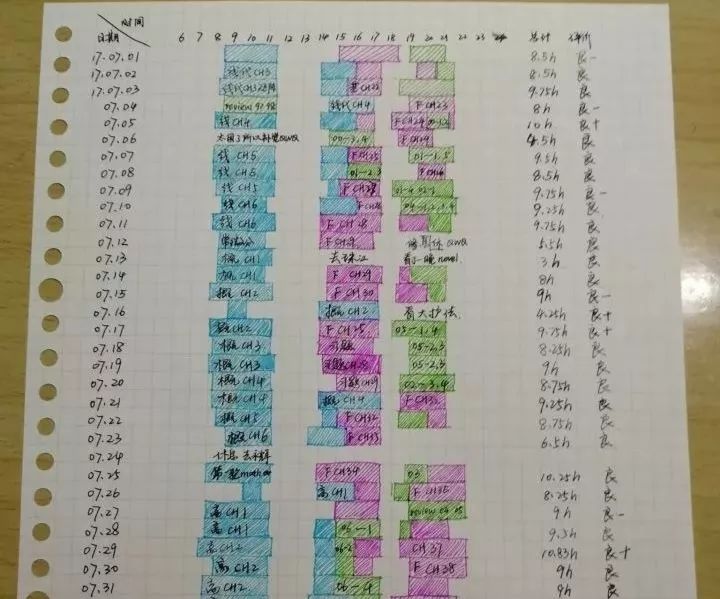 时间
日期 6 7 8 9 10 11 12 13 14 15 16 17 18 19 20 21 22 23 24 总计 评价
17.07.01 8.5h 良-
17.07.02 线代CH3 8.5h 良
17.07.03 9.75h 良-
07.04 review 线代CH4 FCH23 8h 良-
07.05 线CH4 FCH24 10h 良+
07.06 05-3.4 4.5h 良
07.07 线CH5 01-1.5 9.5h 良
07.08 线CH5 01-2.3 8.5h 良
07.09 线CH5 FCH28 9.75h 良-
07.10 线CH6 9.25h 良
07.11 线CH6 FCH28 9.75h 良
07.12 FCH29 5.5h 良
07.13 概CH1 看了一晚novel 3h 良
07.14 概CH1 FCH29 8h 良
07.15 概CH2 FCH30 9h 良-
07.16 概CH2 看大护法 4.25h 良+
07.17 概CH2 05-1.4 9.75h 良+
07.18 概CH3 习题 05-2.3 8.25h 良
07.19 概CH3 05-2.3 9h 良
07.20 概CH4 02-3.4 8.75h 良
07.21 概CH4 概CH4 9.25h 良
07.22 概CH5 FCH32 8.75h 良
07.23 概CH6 FCH33 6.5h 良
07.24
07.25 FCH34 03 10.25h 良
07.26 高CH1 FCH35 8.25h 良
07.27 高CH1 review 9h 良-
07.28 高CH1 06-1 9.5h 良
07.29 高CH2 06-2 CH37 10.83h 良+
07.30 高CH2 FCH38 9h 良
07.31 高CH2 06-4 9h 良